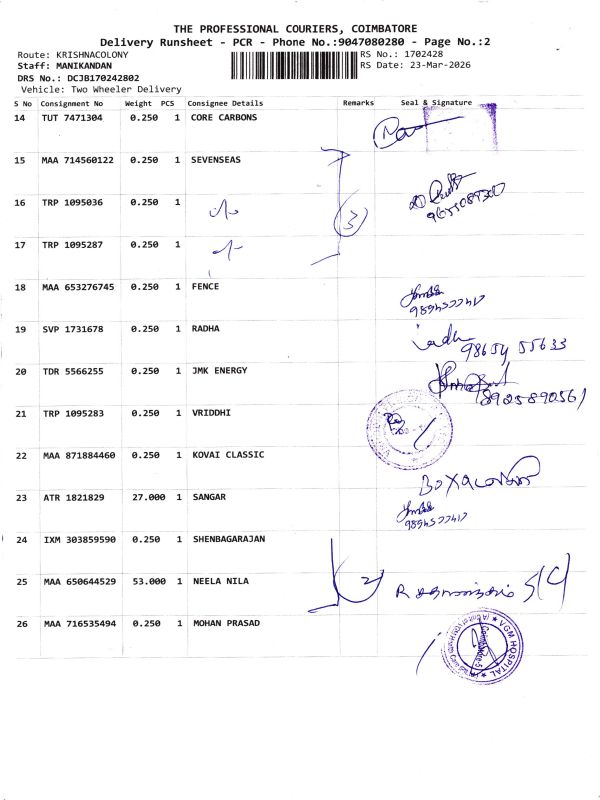 THE PROFESSIONAL COURIERS, COIMBATORE
Delivery Runsheet - PCR - Phone No.:9047080280 - Page No.:2
Route: KRISHNACOLONY
RS No.: 1702428
Staff: MANIKANDAN
RS Date: 23-Mar-2026
DRS No.: DCJB170242802
Vehicle: Two Wheeler Delivery
S No Consignment No Weight PCS Consignee Details Remarks Seal & Signature
14 TUT 7471304 0.250 1 CORE CARBONS
15 MAA 714560122 0.250 1 SEVENSEAS
16 TRP 1095036 0.250 1
3
17 TRP 1095287 0.250 1
18 MAA 653276745 0.250 1 FENCE
19 SVP 1731678 0.250 1 RADHA
98654 55633
20 TDR 5566255 0.250 1 JMK ENERGY
8925890561
21 TRP 1095283 0.250 1 VRIDDHI
22 MAA 871884460 0.250 1 KOVAI CLASSIC
23 ATR 1821829 27.000 1 SANGAR
24 IXM 303859590 0.250 1 SHENBAGARAJAN
25 MAA 650644529 53.000 1 NEELA NILA
2
26 MAA 716535494 0.250 1 MOHAN PRASAD
VGM HOSPITAL